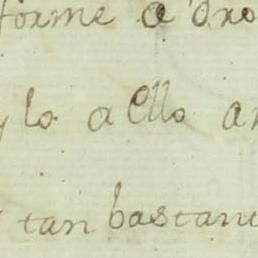 forme a dro
y lo a ello an
tan bastant